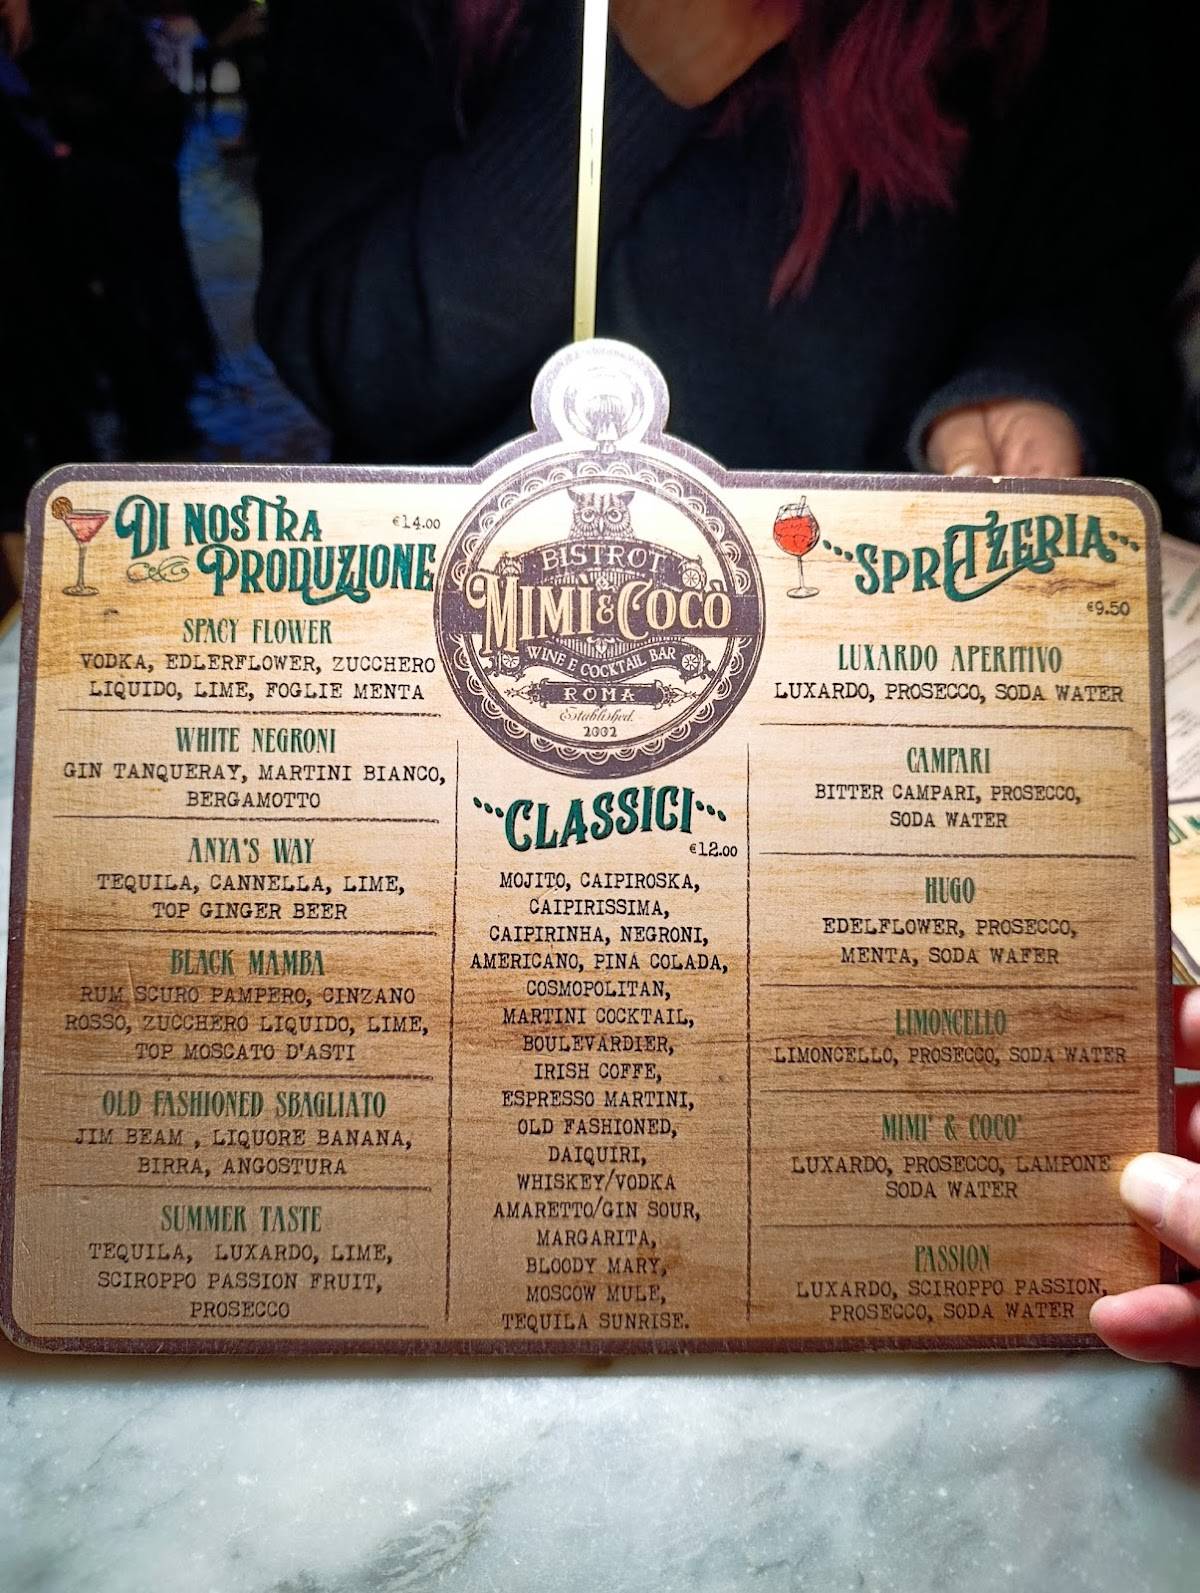 DI NOSTRA
PRODUZIONE
€14.00
SPACY FLOWER
VODKA, EDLERFLOWER, ZUCCHERO
LIQUIDO, LIME, FOGLIE MENTA
WHITE NEGRONI
GIN TANQUERAY, MARTINI BIANCO,
BERGAMOTTO
ANYA'S WAY
TEQUILA, CANNELLA, LIME,
TOP GINGER BEER
BLACK MAMBA
RUM SCURO PAMPERO, CINZANO
ROSSO, ZUCCHERO LIQUIDO, LIME,
TOP MOSCATO D'ASTI
OLD FASHIONED SBAGLIATO
JIM BEAM , LIQUORE BANANA,
BIRRA, ANGOSTURA
SUMMER TASTE
TEQUILA, LUXARDO, LIME,
SCIROPPO PASSION FRUIT,
PROSECCO
BISTROT
MIMÌ & COCÒ
WINE E COCKTAIL BAR
ROMA
Established.
2002
...CLASSICI...
€12.00
MOJITO, CAIPIROSKA,
CAIPIRISSIMA,
CAIPIRINHA, NEGRONI,
AMERICANO, PINA COLADA,
COSMOPOLITAN,
MARTINI COCKTAIL,
BOULEVARDIER,
IRISH COFFE,
ESPRESSO MARTINI,
OLD FASHIONED,
DAIQUIRI,
WHISKEY/VODKA
AMARETTO/GIN SOUR,
MARGARITA,
BLOODY MARY,
MOSCOW MULE,
TEQUILA SUNRISE.
...SPRITZERIA...
€9.50
LUXARDO APERITIVO
LUXARDO, PROSECCO, SODA WATER
CAMPARI
BITTER CAMPARI, PROSECCO,
SODA WATER
HUGO
EDELFLOWER, PROSECCO,
MENTA, SODA WAFER
LIMONCELLO
LIMONCELLO, PROSECCO, SODA WATER
MIMI' & COCO'
LUXARDO, PROSECCO, LAMPONE
SODA WATER
PASSION
LUXARDO, SCIROPPO PASSION,
PROSECCO, SODA WATER